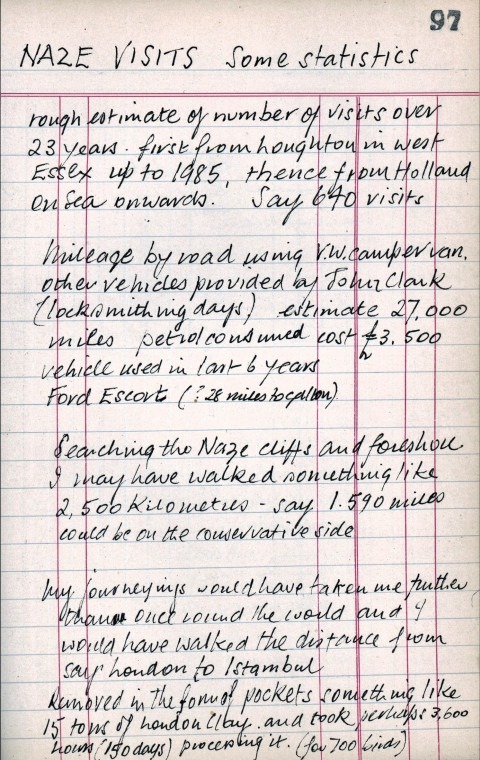 97
NAZE VISITS Some statistics
rough estimate of number of visits over
23 years. first from Loughton in west
Essex up to 1985, thence from Holland
on Sea onwards. Say 640 visits
Mileage by road using V.W. camper van,
other vehicles provided by John Clark
(locksmithing days) estimate 27,000
miles petrol consumed cost £3,500
vehicle used in last 6 years
Ford Escort (? 28 miles to gallon)
Searching the Naze cliffs and foreshore
I may have walked something like
2,500 Kilometres - say 1.590 miles
could be on the conservative side
My journeyings would have taken me further
than once round the world and I
would have walked the distance from
say London to Istambul
Removed in the form of pockets something like
15 tons of London Clay. and took perhaps 3,600
hours (150 days) processing it. (for 700 birds)